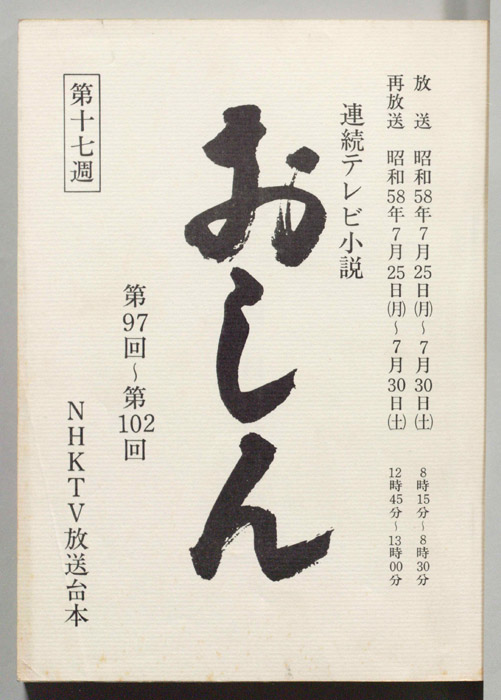 放送 昭和58年7月25日(月)~7月30日(土) 8時15分~8時30分
再放送 昭和58年7月25日(月)~7月30日(土) 12時45分~13時00分
連続テレビ小説
おしん
第97回~第102回
第十七週
NHKTV放送台本